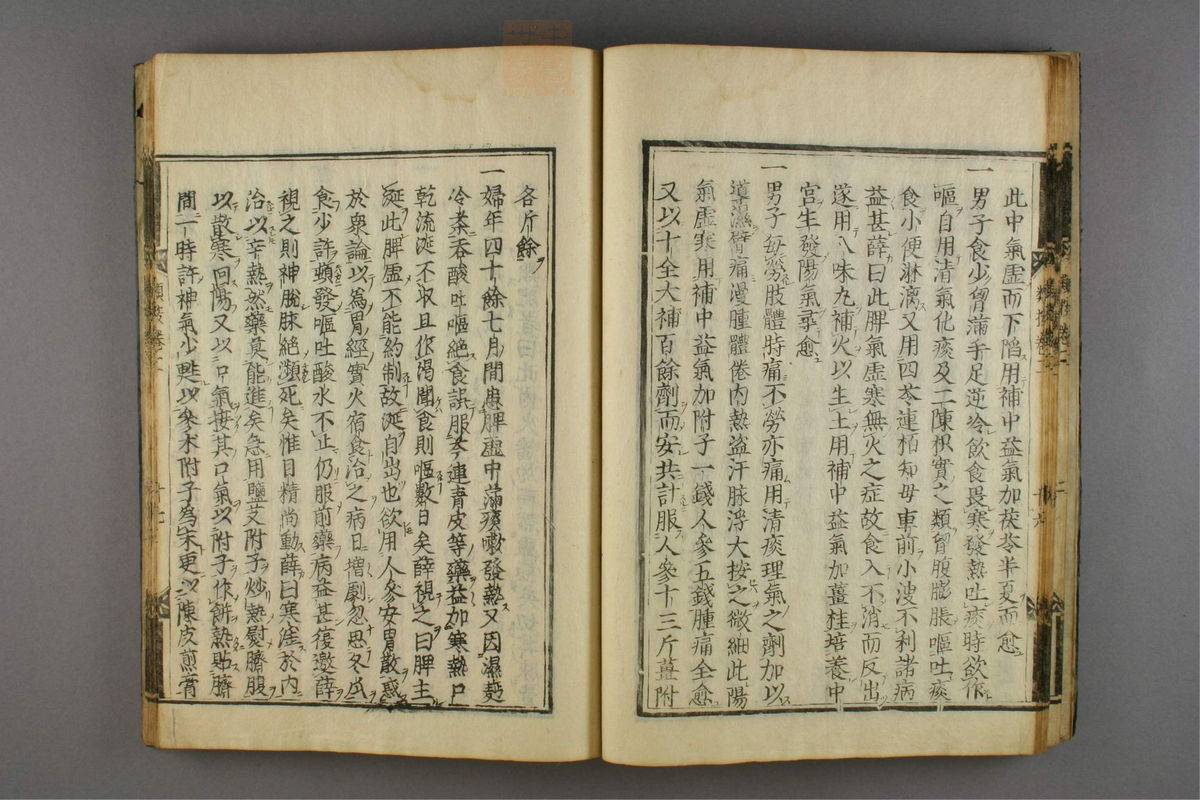 此中氣虛而下陷用補中益氣加茯苓半夏而愈
一男子食少胷滿手足逆冷飲食畏寒發熱吐痰時欲作
嘔自用清氣化痰及二陳枳實之類胷腹膨脹嘔吐痰
食小便淋漓又用四苓連栢知母車前小溲不利諸病
益甚薛曰此脾氣虛寒無火之症故食入不消而反出
遂用八味丸補火以生土用補中益氣加薑桂培養中
宮生發陽氣尋愈
一男子每勞肢體時痛不勞亦痛用清痰理氣之劑加以
導濕臂痛漫腫體倦内熱盜汗脉浮大按之微細此陽
氣虛寒用補中益氣加附子一錢人參五錢腫痛全愈
又以十全大補百餘劑而安共計服人參十三斤薑附
各斤餘
一婦年四十餘七月間患脾虛中滿痰嗽發熱又因濕麪
冷茶吞酸吐嘔絶食誤服芩連青皮等藥益加寒熱口
乾流涎不収且作渴聞食則嘔數日矣薛視之曰脾主
涎此脾虛不能約制故涎自出也欲用人參安胃散惑
於衆論以為胃經實火宿食治之病日增劇忽思冬瓜
食少許頓發嘔吐酸水不止仍服前藥病益甚復邀薛
視之則神脫脉絶瀕死矣惟目精尚動薛曰寒淫於内
治以辛熱然藥莫能進矣急用鹽艾附子炒熱熨臍腹
以散寒回陽又以口氣接其口氣以附子作餅熱貼臍
間一時許神氣少甦以參术附子為末更以陳皮煎膏